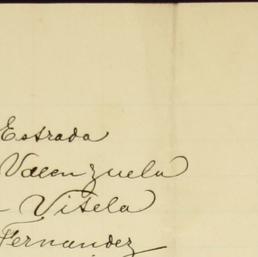 Estrada
Valenzuela
- Vitela
Fernandez